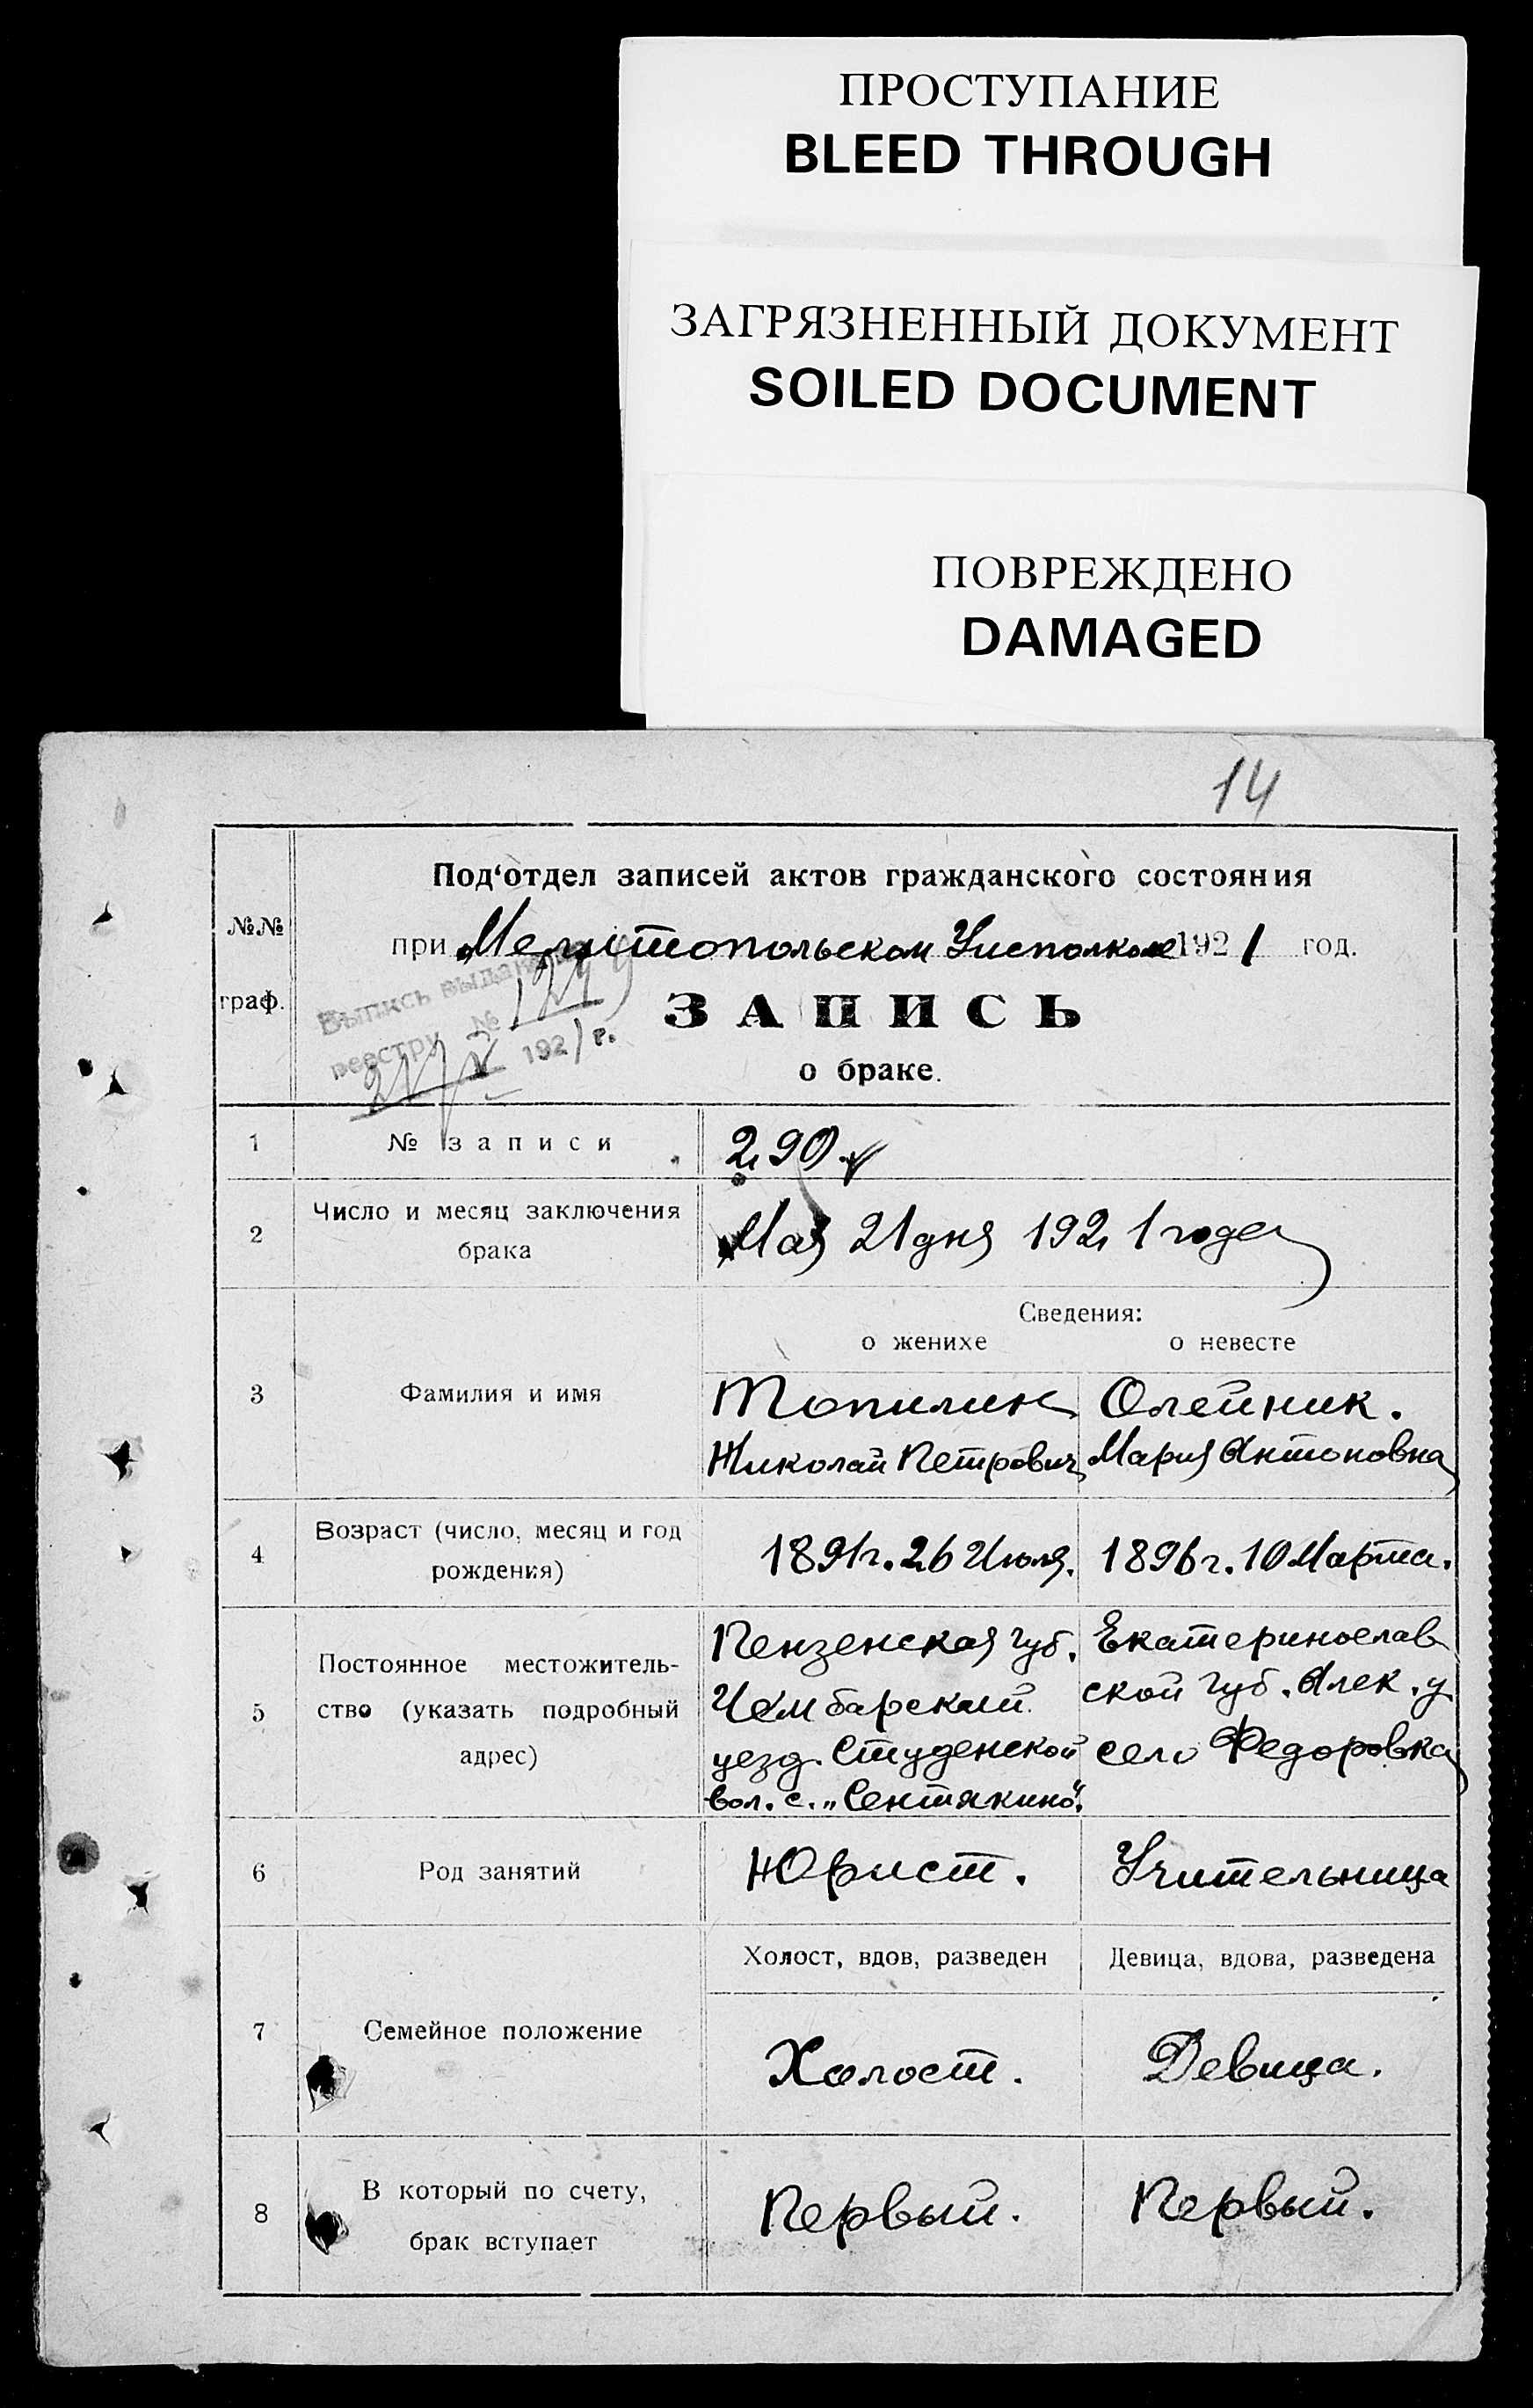 ПРОСТУПАНИЕ
BLEED THROUGH
ЗАГРЯЗНЕННЫЙ ДОКУМЕНТ
SOILED DOCUMENT
ПОВРЕЖДЕНО
DAMAGED
14
№№
граф.
Под'отдел записей актов гражданского состояния
при Мелитопольском Уисполкоме 1921 год.
Выпись выдана
реестру №
21/V 1921 г.
ЗАПИСЬ
о браке.
1 № записи 290.
2 Число и месяц заключения
брака
Мая 21 дня 1921 года
Сведения:
о женихе о невесте
3 Фамилия и имя
Топилин Олейник.
Николай Петрович Мария Антоновна
4 Возраст (число, месяц и год
рождения)
1891 г. 26 Июля. 1896 г. 10 Марта.
5 Постоянное местожитель-
ство (указать подробный
адрес)
Пензенская губ.
Чембарский
уезд. Студенской
вол. с. „Сентякино".
Екатеринослав
ской губ. Алек. у.
село Федоровка
6 Род занятий Юрист. Учительница
Холост, вдов, разведен Девица, вдова, разведена
7 Семейное положение
Холост. Девица.
8 В который по счету,
брак вступает
Первый. Первый.